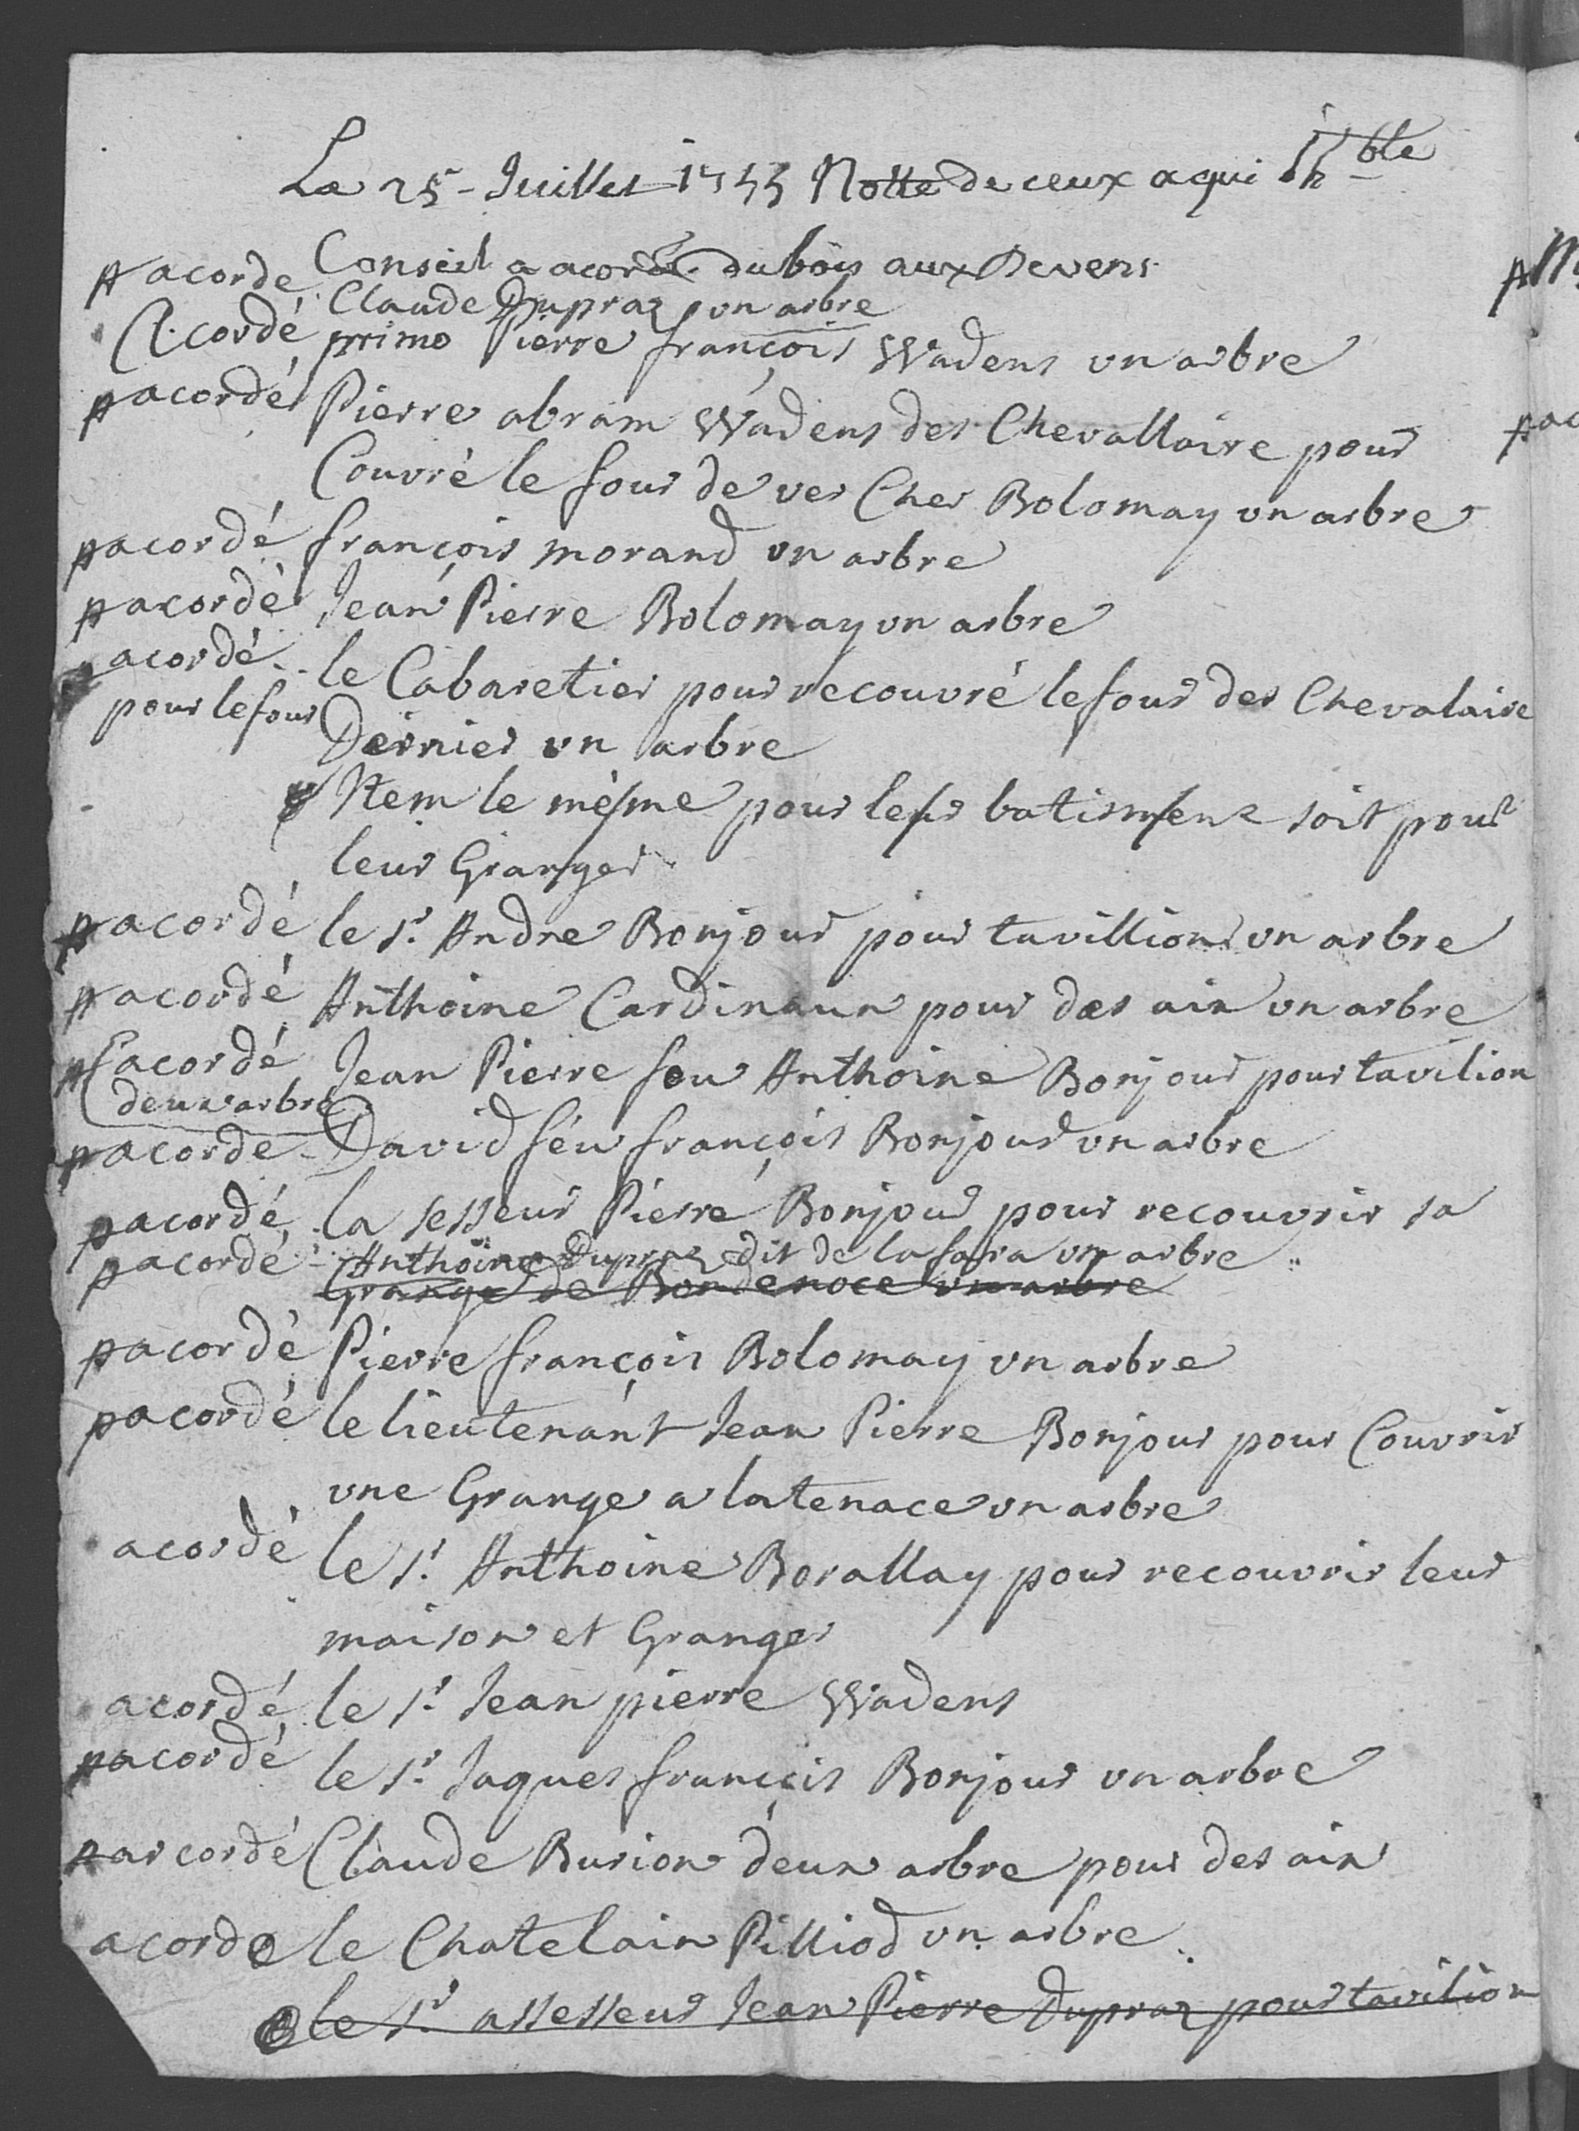 Le 25 - Juillet 1755 Notte de ceux a qui h^ble
Conseil a acordé du bois aux Devens
p acorde Claude Dupraz un arbre
Acordé primo Pierre françois Wadens un arbre
p acordé Pierre abram Wadens des Chevallaire pour
Couvré le four de ver Ches Bolomay un arbre
p acordé françois morand un arbre
p acordé Jean Pierre Bolomay un arbre
p acordé le Cabaretier pour recouvré le four des Chevalaire
pour le four Dernier un arbre
Item le mesme pour leur batisment soit pour
leur Granger
p acordé le Sr. Andre Bonjour pour tavillion un arbre
p acordé Anthoine Cardinaux pour des aix un arbre
p acordé Jean Pierre feu Anthoine Bonjour pour tavilion
deux arbre
p acorde David feu françois Bonjour un arbre
p acordé la sesseur Pierre Bonjour pour recouvrir sa
p acordé Anthoine Dupraz dit de la fara un arbre
Grange de Bondenoce un arbre
p acordé Pierre françois Bolomay un arbre
p acordé le lieutenant Jean Pierre Bonjour pour Couvrir
une Grange a la tenace un arbre
acordé le Sr. Anthoine Borallay pour recouvrir leur
maison et Granges
acordé le Sr. Jean pierre Wadens
p acordé le Sr. Jaques françois Bonjour un arbre
p arcordé Claude Burion deux arbre pour des aix
acorde le Chatelain Pilliod un arbre
le Sr. assesseur Jean Pierre Dupraz pour tavilion